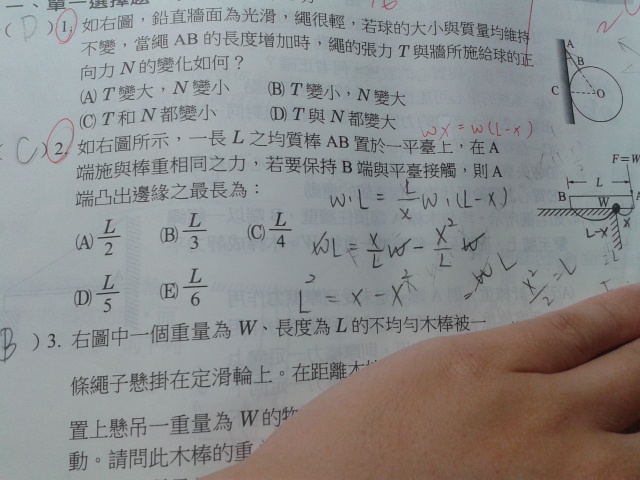 一、單一選擇題
( D ) 1. 如右圖，鉛直牆面為光滑，繩很輕，若球的大小與質量均維持
不變，當繩 AB 的長度增加時，繩的張力 T 與牆所施給球的正
向力 N 的變化如何？
(A) T 變大，N 變小 (B) T 變小，N 變大
(C) T 和 N 都變小 (D) T 與 N 都變大
A
B
C
O
wx = w(L-x)
( C ) 2. 如右圖所示，一長 L 之均質棒 AB 置於一平臺上，在 A
端施與棒重相同之力，若要保持 B 端與平臺接觸，則 A
端凸出邊緣之最長為：
(A) L/2 (B) L/3 (C) L/4
(D) L/5 (E) L/6
F=W
L
B
W
A
L-x
x
w·L = L/x w·(L-x)
wL = x/L w - x²/L w
L² = x - x²
= wL
x²/2 = L
B ) 3. 右圖中一個重量為 W、長度為 L 的不均勻木棒被一
條繩子懸掛在定滑輪上。在距離木
置上懸吊一重量為 W 的物
動。請問此木棒的重